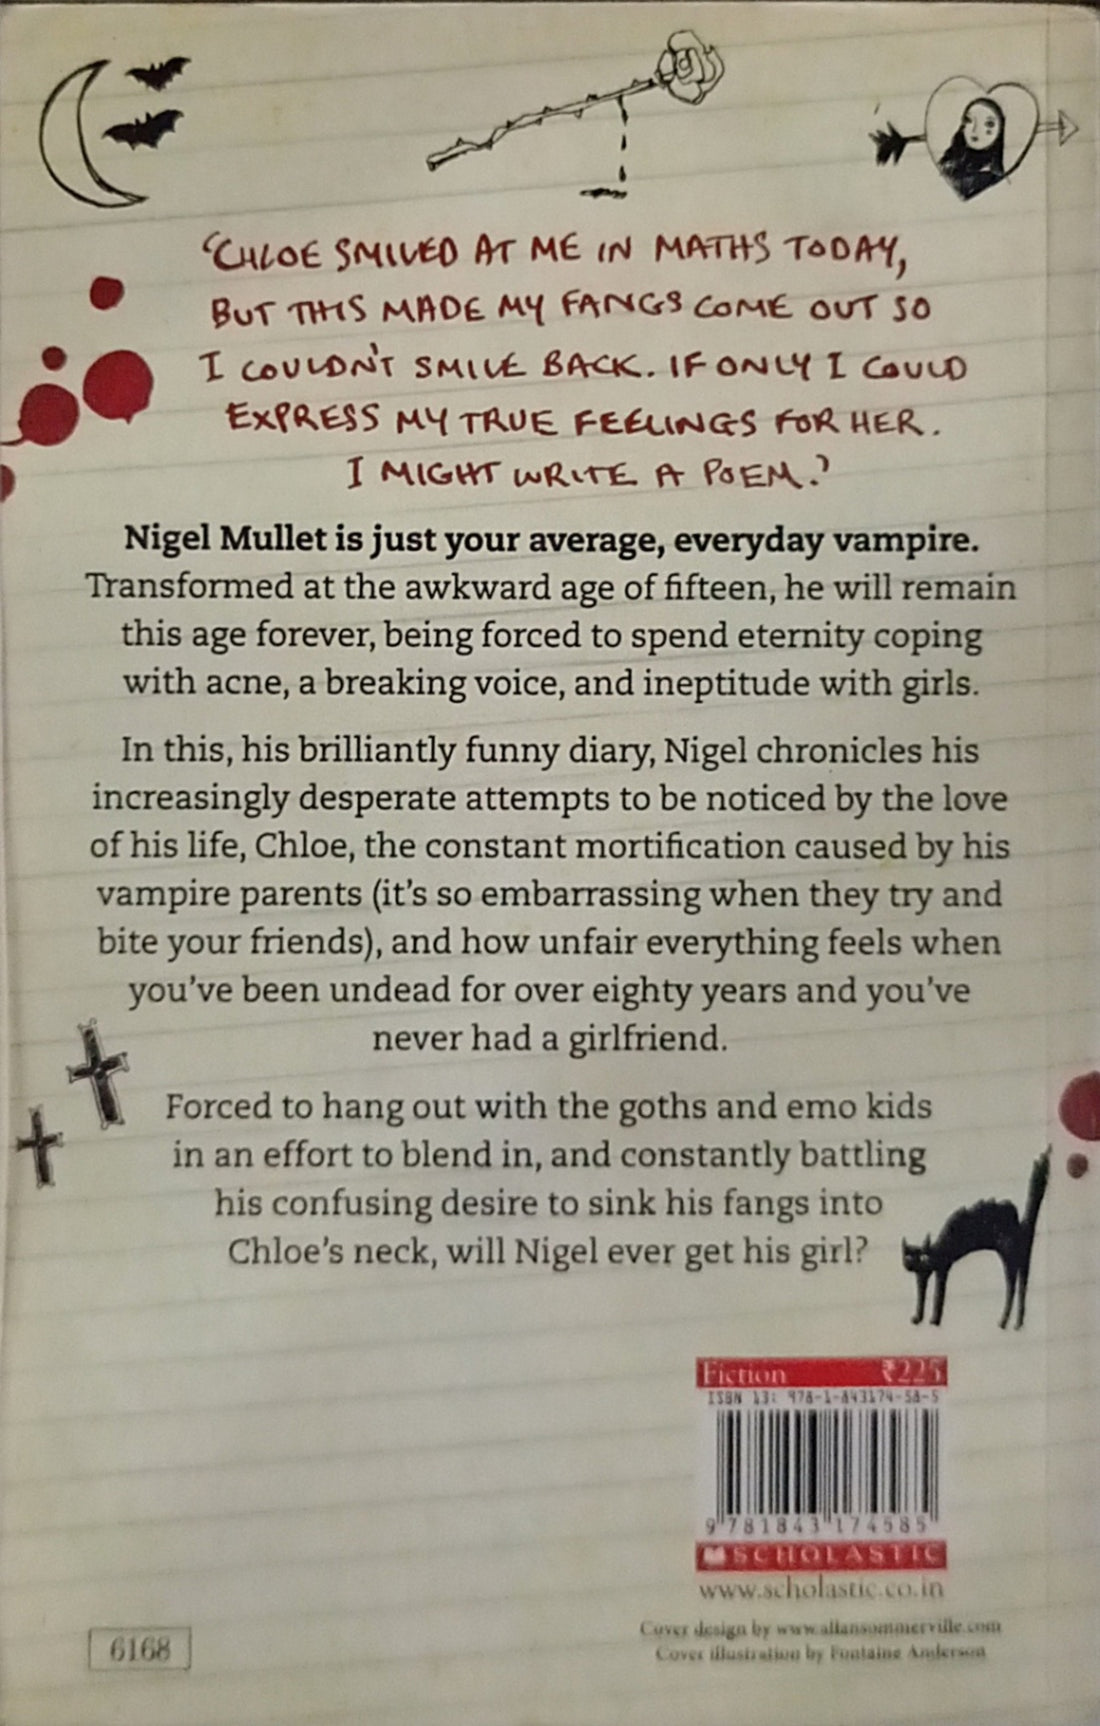 ‘CHLOE SMILED AT ME IN MATHS TODAY,
BUT THIS MADE MY FANGS COME OUT SO
I COULDN'T SMILE BACK. IF ONLY I COULD
EXPRESS MY TRUE FEELINGS FOR HER.
I MIGHT WRITE A POEM.’
Nigel Mullet is just your average, everyday vampire.
Transformed at the awkward age of fifteen, he will remain
this age forever, being forced to spend eternity coping
with acne, a breaking voice, and ineptitude with girls.
In this, his brilliantly funny diary, Nigel chronicles his
increasingly desperate attempts to be noticed by the love
of his life, Chloe, the constant mortification caused by his
vampire parents (it’s so embarrassing when they try and
bite your friends), and how unfair everything feels when
you’ve been undead for over eighty years and you’ve
never had a girlfriend.
Forced to hang out with the goths and emo kids
in an effort to blend in, and constantly battling
his confusing desire to sink his fangs into
Chloe’s neck, will Nigel ever get his girl?
Fiction ₹225
ISBN 13: 978-1-843174-58-5
9 781843 174585
SCHOLASTIC
www.scholastic.co.in
Cover design by www.allansommerville.com
Cover illustration by Fontaine Anderson
6168